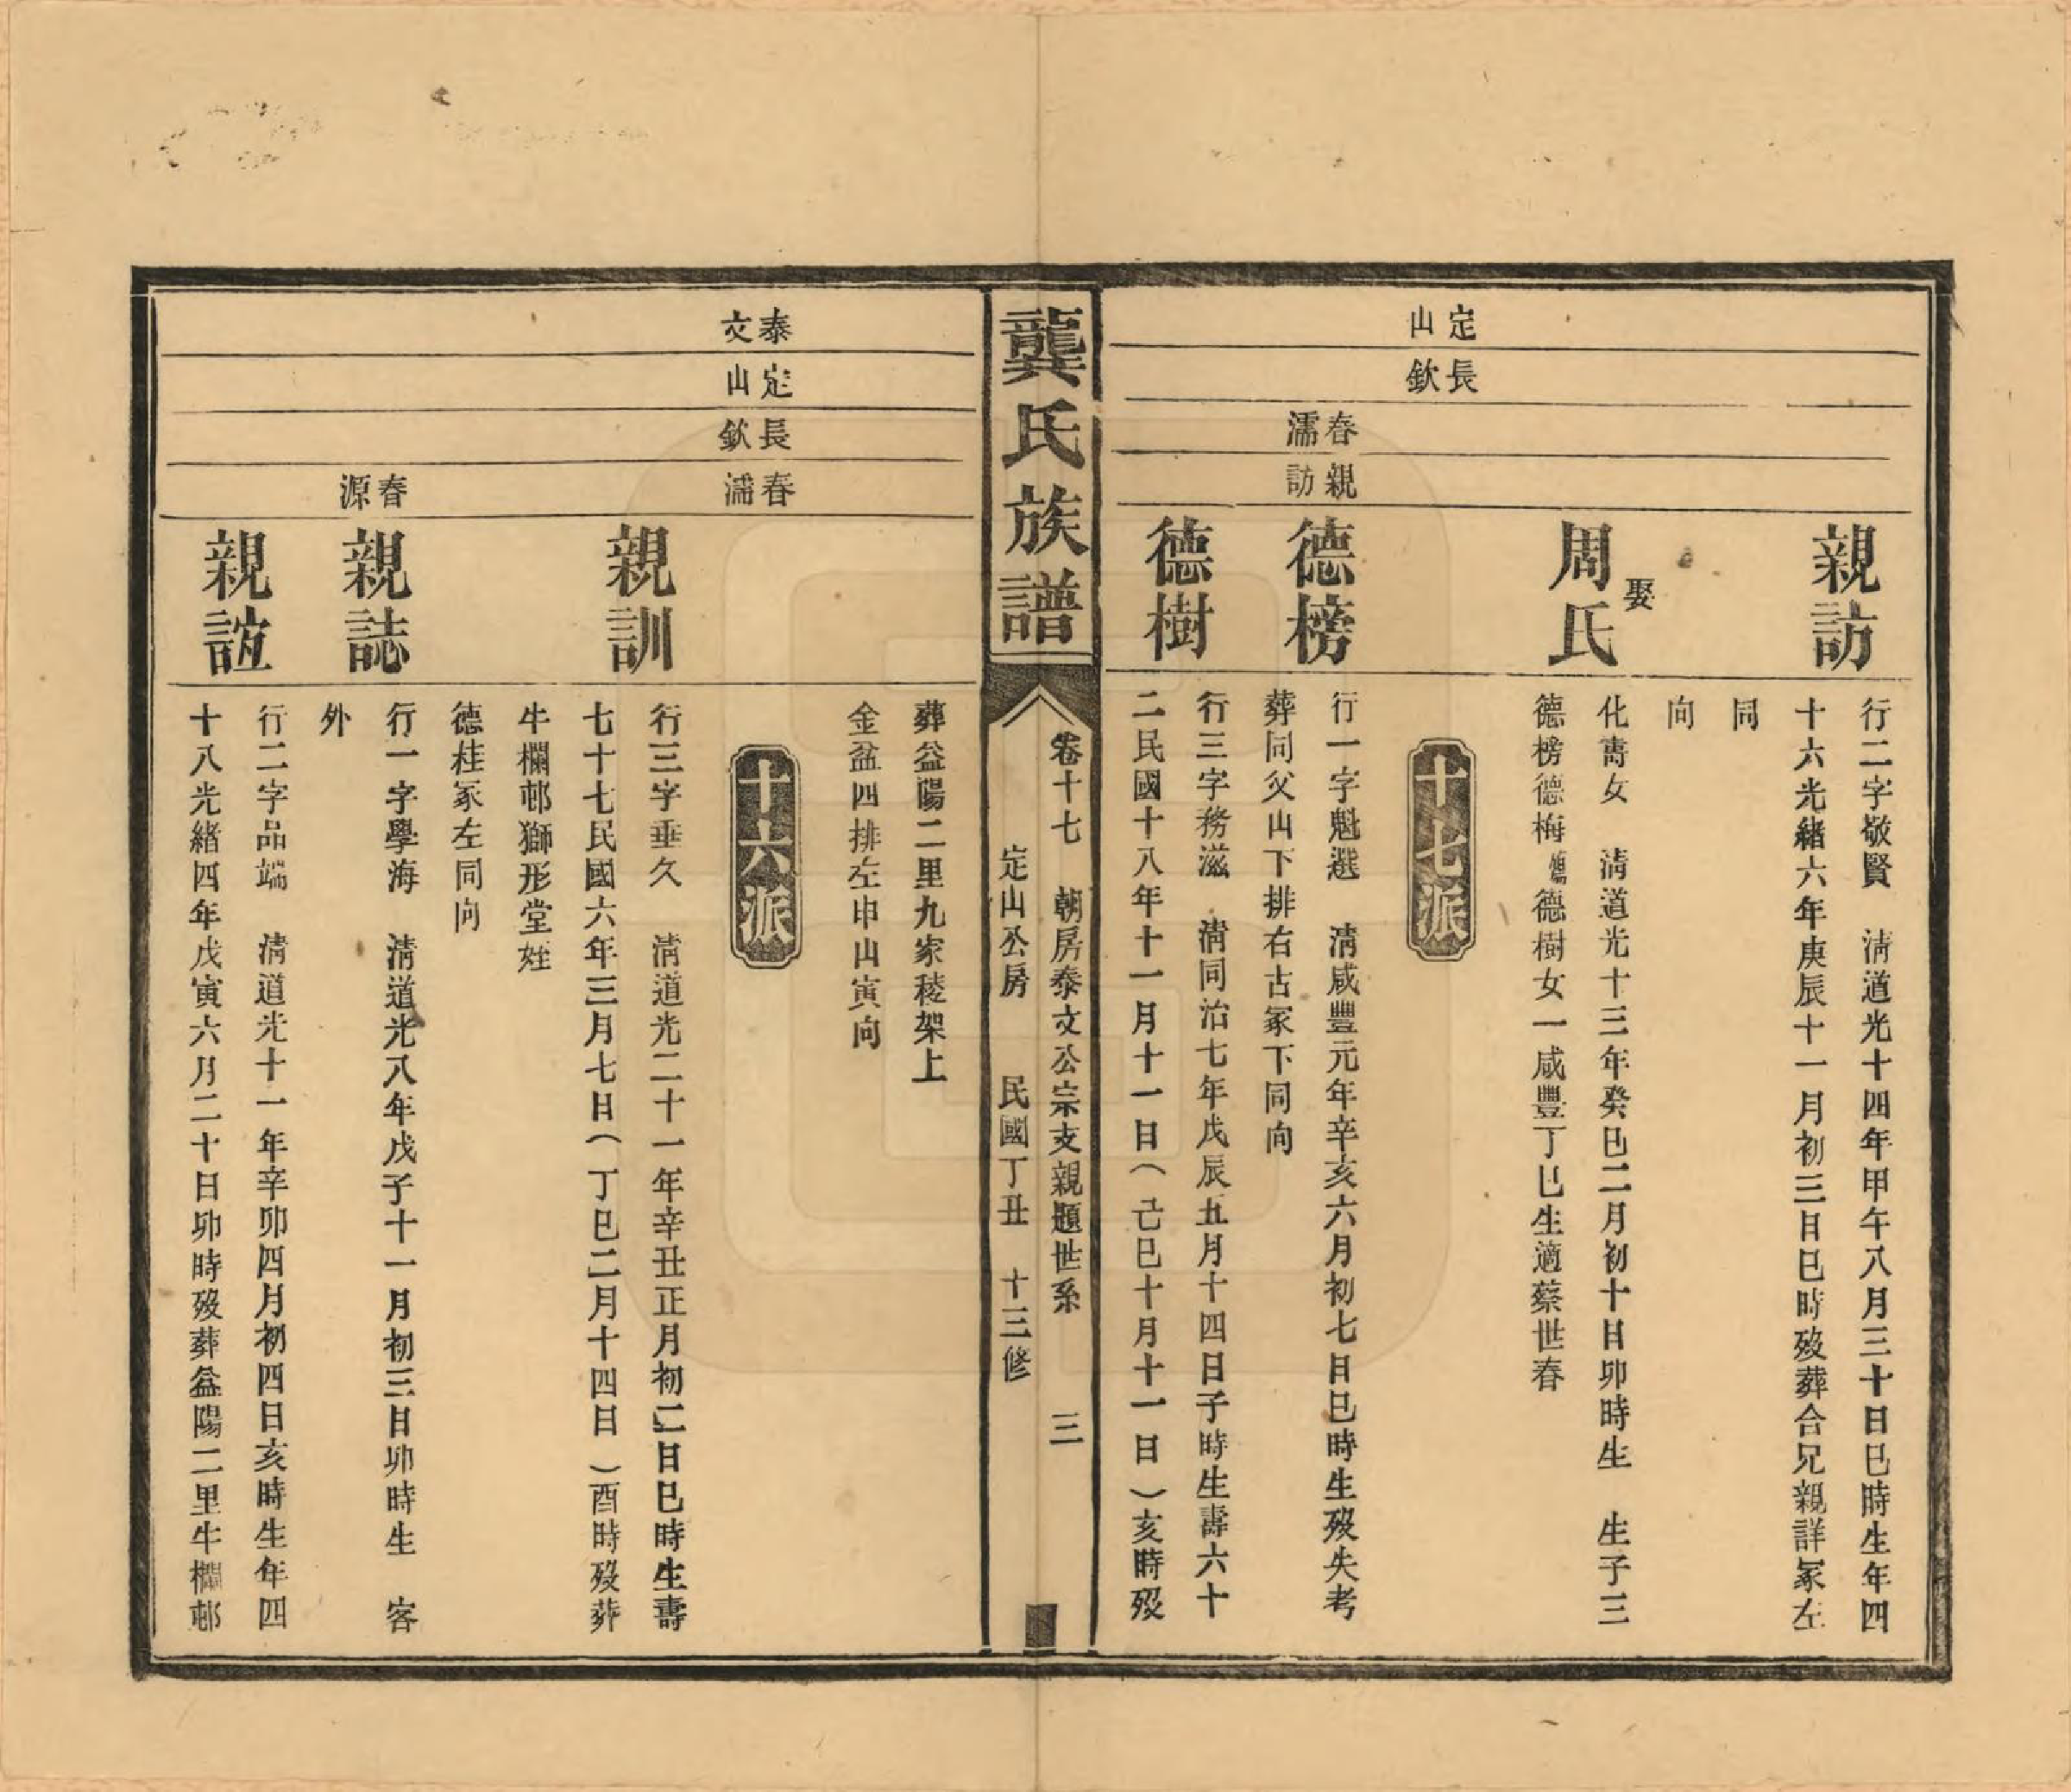 定山
長欽
春濡
親訪
親訪
行二字敬賢　淸道光十四年甲午八月三十日巳時生年四
十六光緒六年庚辰十一月初三日巳時歿葬合兄親詳冢左
同
向
娶
周氏
化壽女　淸道光十三年癸巳二月初十日卯時生　生子三
德榜德梅殤德樹女一咸豐丁巳生適蔡世春
十七派
德榜
行一字魁選　淸咸豐元年辛亥六月初七日巳時生歿失考
葬同父山下排右古冢下同向
德樹
行三字務滋　淸同治七年戊辰五月十四日子時生壽六十
二民國十八年十一月十一日（己巳十月十一日）亥時歿
龔氏族譜
卷十七　朝房泰文公宗支親題世系　三
定山公房　民國丁丑　十三修
葬益陽二里九家稜架上
金盆四排左申山寅向
泰文
定山
長欽
春濡
十六派
親訓
行三字垂久　淸道光二十一年辛丑正月初二日巳時生壽
七十七民國六年三月七日（丁巳二月十四日）酉時歿葬
牛欄邨獅形堂姪
德桂冢左同向
春源
親誌
行一字學海　淸道光八年戊子十一月初三日卯時生　客
外
親誼
行二字品端　淸道光十一年辛卯四月初四日亥時生年四
十八光緒四年戊寅六月二十日卯時歿葬益陽二里牛欄邨